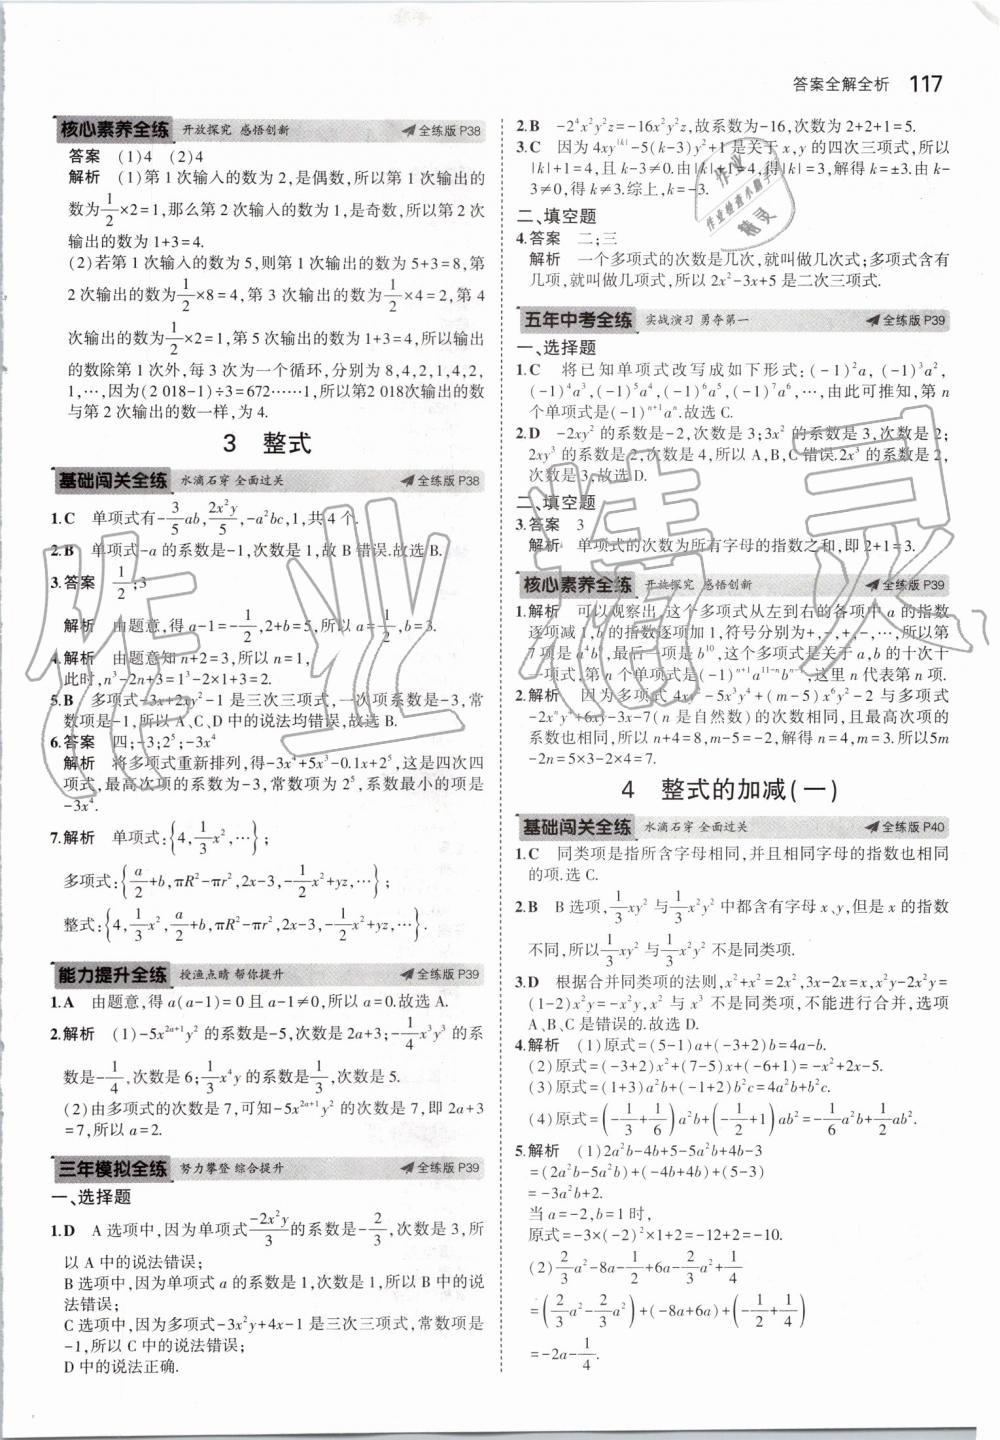 答案全解全析 117
核心素养全练 开放探究 感悟创新 全练版 P38
答案 (1)4 (2)4
解析 (1)第1次输入的数为2,是偶数,所以第1次输出的
数为1/2×2=1,那么第2次输入的数为1,是奇数,所以第2次
输出的数为1+3=4.
(2)若第1次输入的数为5,则第1次输出的数为5+3=8,第
2次输出的数为1/2×8=4,第3次输出的数为1/2×4=2,第4
次输出的数为1/2×2=1,第5次输出的数为1+3=4,所以输出
的数除第1次外,每3次为一个循环,分别为8,4,2,1,4,2,
1,…,因为(2 018-1)÷3=672……1,所以第2 018次输出的数
与第2次输出的数一样,为4.
3 整式
基础闯关全练 水滴石穿 全面过关 全练版 P38
1.C 单项式有-3/5ab,2x²y/5,-a²bc,1,共4个.
2.B 单项式-a的系数是-1,次数是1,故B错误.故选B.
3.答案 1/2;3
解析 由题意,得a-1=-1/2,2+b=5,所以a=1/2,b=3.
4.解析 由题意知n+2=3,所以n=1,
此时,n³-2n+3=1³-2×1+3=2.
5.B 多项式-3x+2xy²-1是三次三项式,一次项系数是-3,常
数项是-1,所以A、C、D中的说法均错误,故选B.
6.答案 四;-3;2⁵;-3x⁴
解析 将多项式重新排列,得-3x⁴+5x³-0.1x+2⁵,这是四次四
项式,最高次项的系数为-3,常数项为2⁵,系数最小的项是
-3x⁴.
7.解析 单项式:{4,1/3x²,…};
多项式:{a/2+b,πR²-πr²,2x-3,-1/2x²+yz,…};
整式:{4,1/3x²,a/2+b,πR²-πr²,2x-3,-1/2x²+yz,…}.
能力提升全练 授渔点睛 帮你提升 全练版 P39
1.A 由题意,得a(a-1)=0且a-1≠0,所以a=0.故选A.
2.解析 (1)-5x²ᵃ⁺¹y²的系数是-5,次数是2a+3;-1/4x³y³的系
数是-1/4,次数是6;1/3x⁴y的系数是1/3,次数是5.
(2)由多项式的次数是7,可知-5x²ᵃ⁺¹y²的次数是7,即2a+3
=7,所以a=2.
三年模拟全练 努力攀登 综合提升 全练版 P39
一、选择题
1.D A选项中,因为单项式-2x²y/3的系数是-2/3,次数是3,所
以A中的说法错误;
B选项中,因为单项式a的系数是1,次数是1,所以B中的说
法错误;
C选项中,因为多项式-3x²y+4x-1是三次三项式,常数项是
-1,所以C中的说法错误;
D中的说法正确.
2.B -2⁴x²y²z=-16x²y²z,故系数为-16,次数为2+2+1=5.
3.C 因为4xy^|k|-5(k-3)y²+1是关于x,y的四次三项式,所以
|k|+1=4,且k-3≠0.由|k|+1=4,得|k|=3,解得k=±3.由k-
3≠0,得k≠3.综上,k=-3.
二、填空题
4.答案 二;三
解析 一个多项式的次数是几次,就叫做几次式;多项式含有
几项,就叫做几项式,所以2x²-3x+5是二次三项式.
五年中考全练 实战演习 勇夺第一 全练版 P39
一、选择题
1.C 将已知单项式改写成如下形式:(-1)²a,(-1)³a²,
(-1)⁴a³,(-1)⁵a⁴,(-1)⁶a⁵,(-1)⁷a⁶,…,由此可推知,第n
个单项式是(-1)ⁿ⁺¹aⁿ.故选C.
2.D -2xy²的系数是-2,次数是3;3x²的系数是3,次数是2;
2xy³的系数是2,次数是4,所以A、B、C错误.2x³的系数是2,
次数是3;故选D.
二、填空题
3.答案 3
解析 单项式的次数为所有字母的指数之和,即2+1=3.
核心素养全练 开放探究 感悟创新 全练版 P39
1.解析 可以观察出,这个多项式从左到右的各项中a的指数
逐项减1,b的指数逐项加1,符号分别为+,-,+,-,…,所以第
7项是a⁴b⁶,最后一项是b¹⁰,这个多项式是关于a,b的十次十
一项式,第n个单项式是(-1)ⁿ⁺¹a¹¹⁻ⁿbⁿ⁻¹,它代表第n项.
2.解析 因为多项式4xy²-5x³y⁴+(m-5)x⁶y²-2与多项式
-2xⁿy⁴+6xy-3x-7(n是自然数)的次数相同,且最高次项的
系数也相同,所以n+4=8,m-5=-2,解得n=4,m=3.所以5m
-2n=5×3-2×4=7.
4 整式的加减(一)
基础闯关全练 水滴石穿 全面过关 全练版 P40
1.C 同类项是指所含字母相同,并且相同字母的指数也相同
的项.选C.
2.B B选项,1/3xy²与1/3x²y²中都含有字母x、y,但是x的指数
不同,所以1/3xy²与1/3x²y²不是同类项.
3.D 根据合并同类项的法则,x²+x²=2x²,3x-2x=x,x²y-2x²y=
(1-2)x²y=-x²y,x²与x³不是同类项,不能进行合并,选项
A、B、C是错误的.故选D.
4.解析 (1)原式=(5-1)a+(-3+2)b=4a-b.
(2)原式=(-3+2)x²+(7-5)x+(-6+1)=-x²+2x-5.
(3)原式=(1+3)a²b+(-1+2)b²c=4a²b+b²c.
(4)原式=(-1/3+1/6)a²b+(-1/2+1)ab²=-1/6a²b+1/2ab².
5.解析 (1)2a²b-4b+5-5a²b+4b-3
=(2a²b-5a²b)+(-4b+4b)+(5-3)
=-3a²b+2.
当a=-2,b=1时,
原式=-3×(-2)²×1+2=-12+2=-10.
(2)2/3a²-8a-1/2+6a-2/3a²+1/4
=(2/3a²-2/3a²)+(-8a+6a)+(-1/2+1/4)
=-2a-1/4.
作业精灵